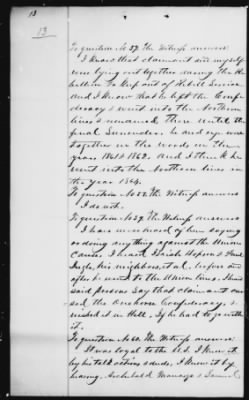 13
13
To question No 57. The Witness answers
I know that claimant and myself
were lying out together during the Re
bellion to keep out of Rebell Service
and I know that he left the Confe
deracy & went into the Northern
lines & remained there until the
final Surrender. he and I was
together in the woods in the
year 1861 & 1862. And I think he
went into the Northern lines in
the year 1864.
To question No 58. The Witness answers
I do not.
To question No 59. The Witness answers
I have never heard of him saying
or doing anything against the Union
Cause. I heard Isaiah Hopson &
his neighbors, et al. before and
after he went to the Union lines.
said persons say that claimant cur
sed the Southern Confederacy, &
wished it in Hell, if he had to go with
it.
To question No 60. The Witness answers
It was loyal to the U.S. I know it
by his talk actions & deeds. I knew it by
having Archibald & Samuel,